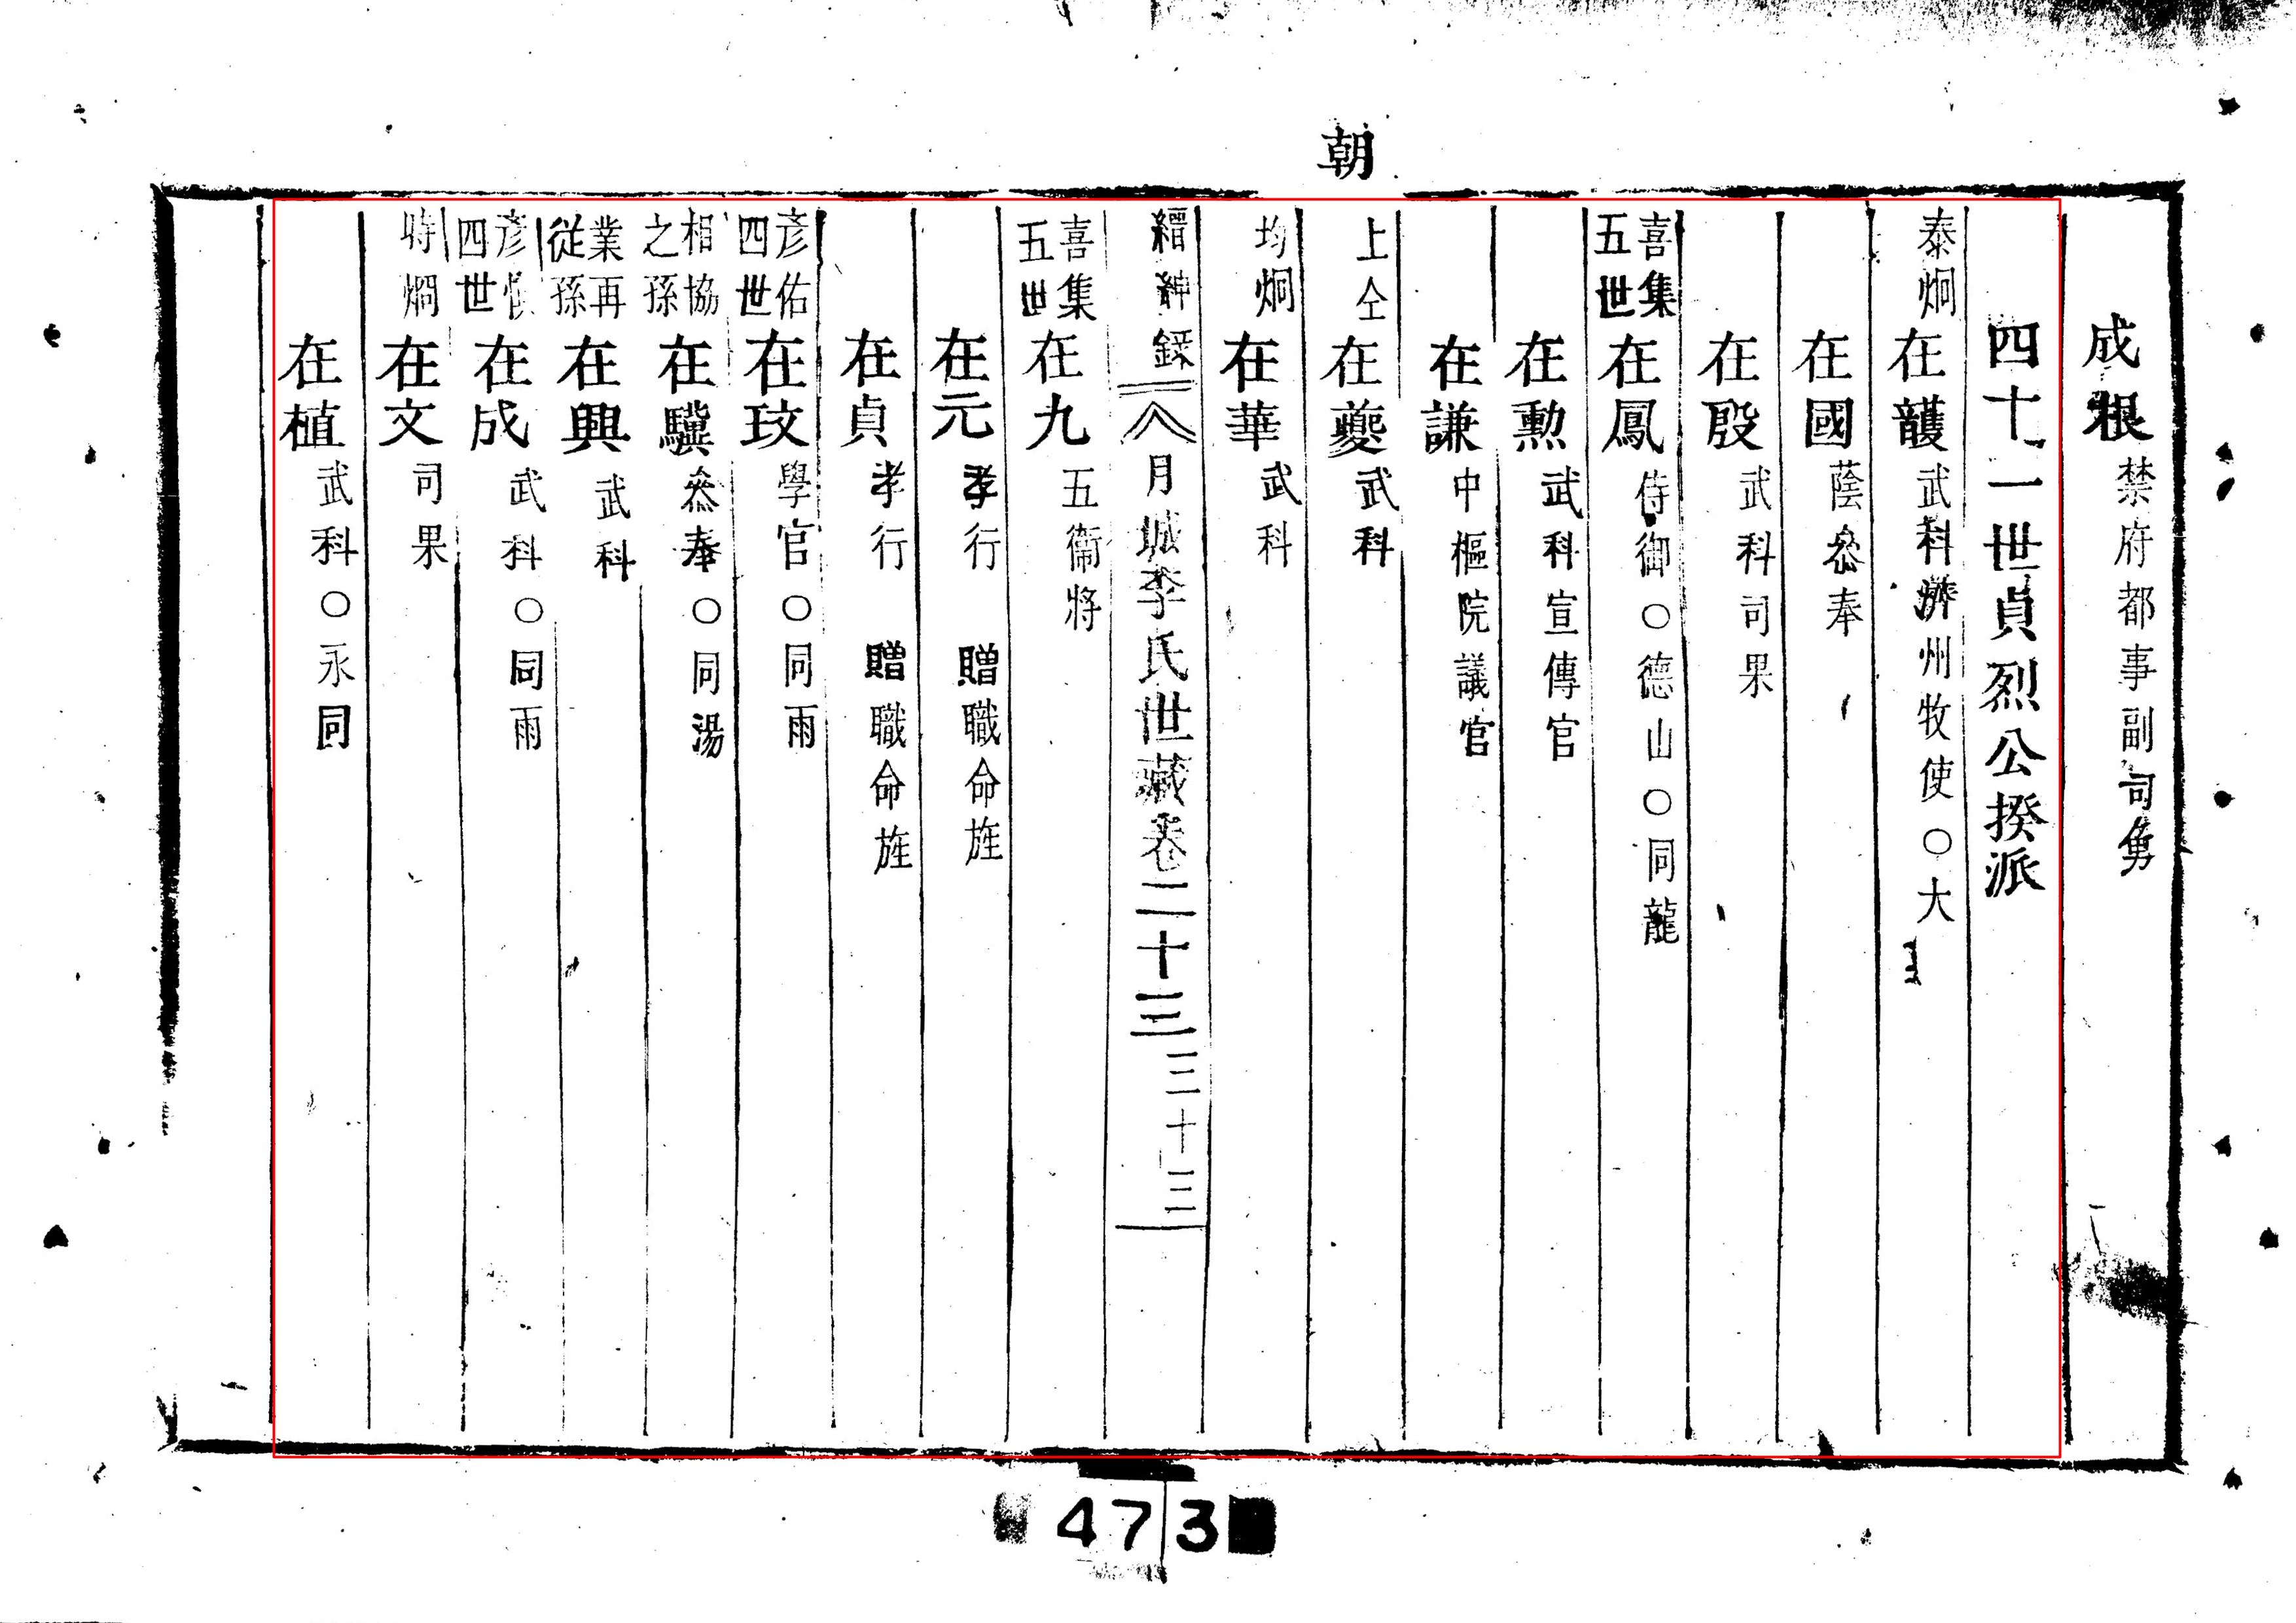 朝
成根 禁府都事副司勇
四十一世貞烈公揆派
泰炯 在頀 武科濟州牧使○大
在國 蔭叅奉
在殷 武科司果
喜集五世 在鳳 侍御○德山○同龍
在勲 武科宣傳官
在謙 中樞院議官
上仝 在夔 武科
均炯 在華 武科
縉紳錄 月城李氏世藏卷二十三 三十三
喜集五世 在九 五衞將
在元 孝行 贈職命旌
在貞 孝行 贈職命旌
彦佑四世 在玟 學官○同雨
相協之孫 在驥 叅奉○同湯
業再從孫 在興 武科
彦 四世 在成 武科○同雨
時烱 在文 司果
在植 武科○永同
473